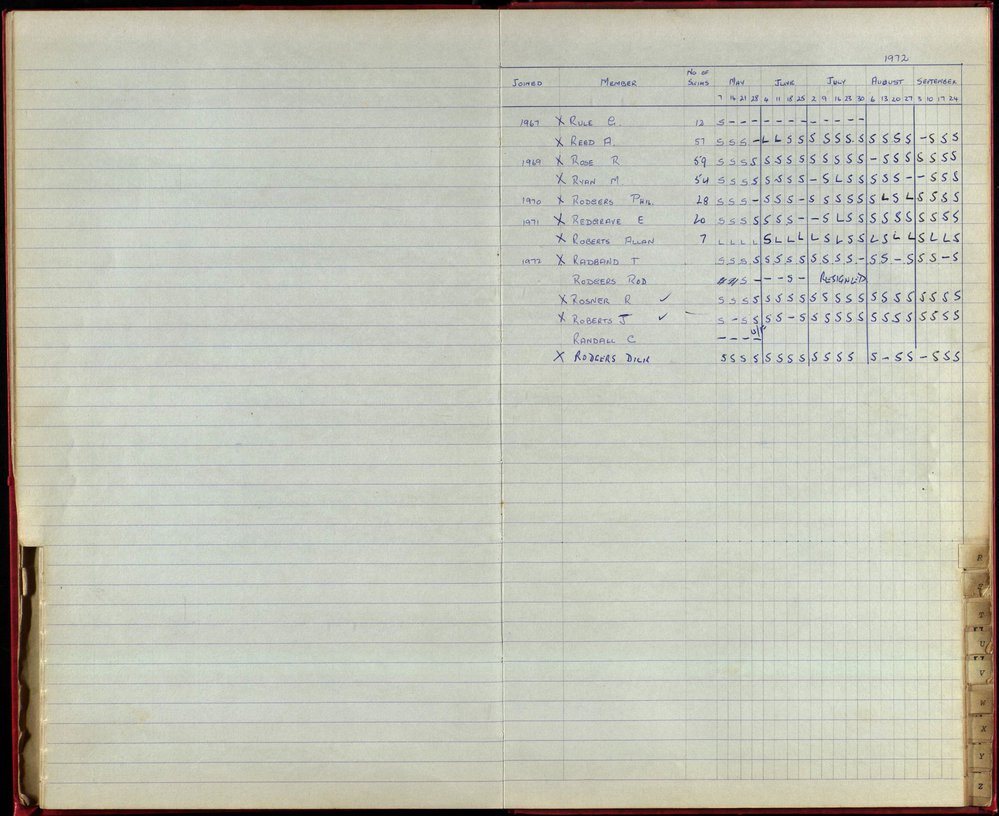 1972
JOINED MEMBER No OF SWIMS MAY JUNE JULY AUGUST SEPTEMBER
7 14 21 28 4 11 18 25 2 9 16 23 30 6 13 20 27 3 10 17 24
1967 X RULE G. 12 S - - - - - - - - - - - -
X READ A. 57 S S S - L L S S S S S S S S S S S - S S S
1969 X ROSE R 59 S S S S S S S S S S S S S - S S S S S S S
X RYAN M. 54 S S S S S S S S - S L S S S S S - - S S S
1970 X RODGERS PHIL. 28 S S S - S S S - S S S S S S L S L S S S S
1971 X REDGRAVE E 20 S S S S S S S - - S L S S S S S S S S S S
X ROBERTS ALLAN 7 L L L L S L L L L S L S S L S L L S L L S
1972 X RADBAND T S S S S S S S S S S S S - S S - S S S - S
RODGERS ROD S - - - S - RESIGNED
X ROSNER R ✓ S S S S S S S S S S S S S S S S S S S S S
X ROBERTS J ✓ S - S S S S - S S S S S S S S S S S S S S
RANDALL C - - - -
X RODGERS DICK S S S S S S S S S S S S S - S S - S S S
R
S
T
U
V
W
X
Y
Z